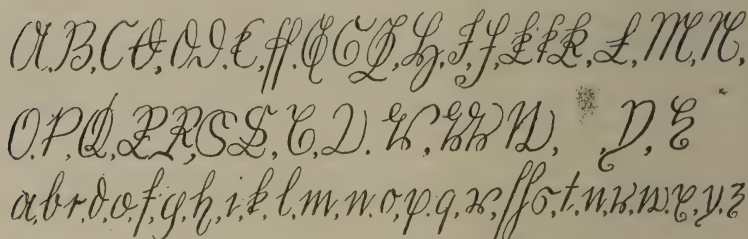 A.B,C D,D D.E,ff.G G G,H,I,J,K K K,L,M,N,
O.P,Q,R R,S S,T,U.V,W W Y, Z
a,b,c,d,e,f,g,h,i,k,l,m,n.o,p.q,r,ſſ s,t,u,v,w,x,y,z